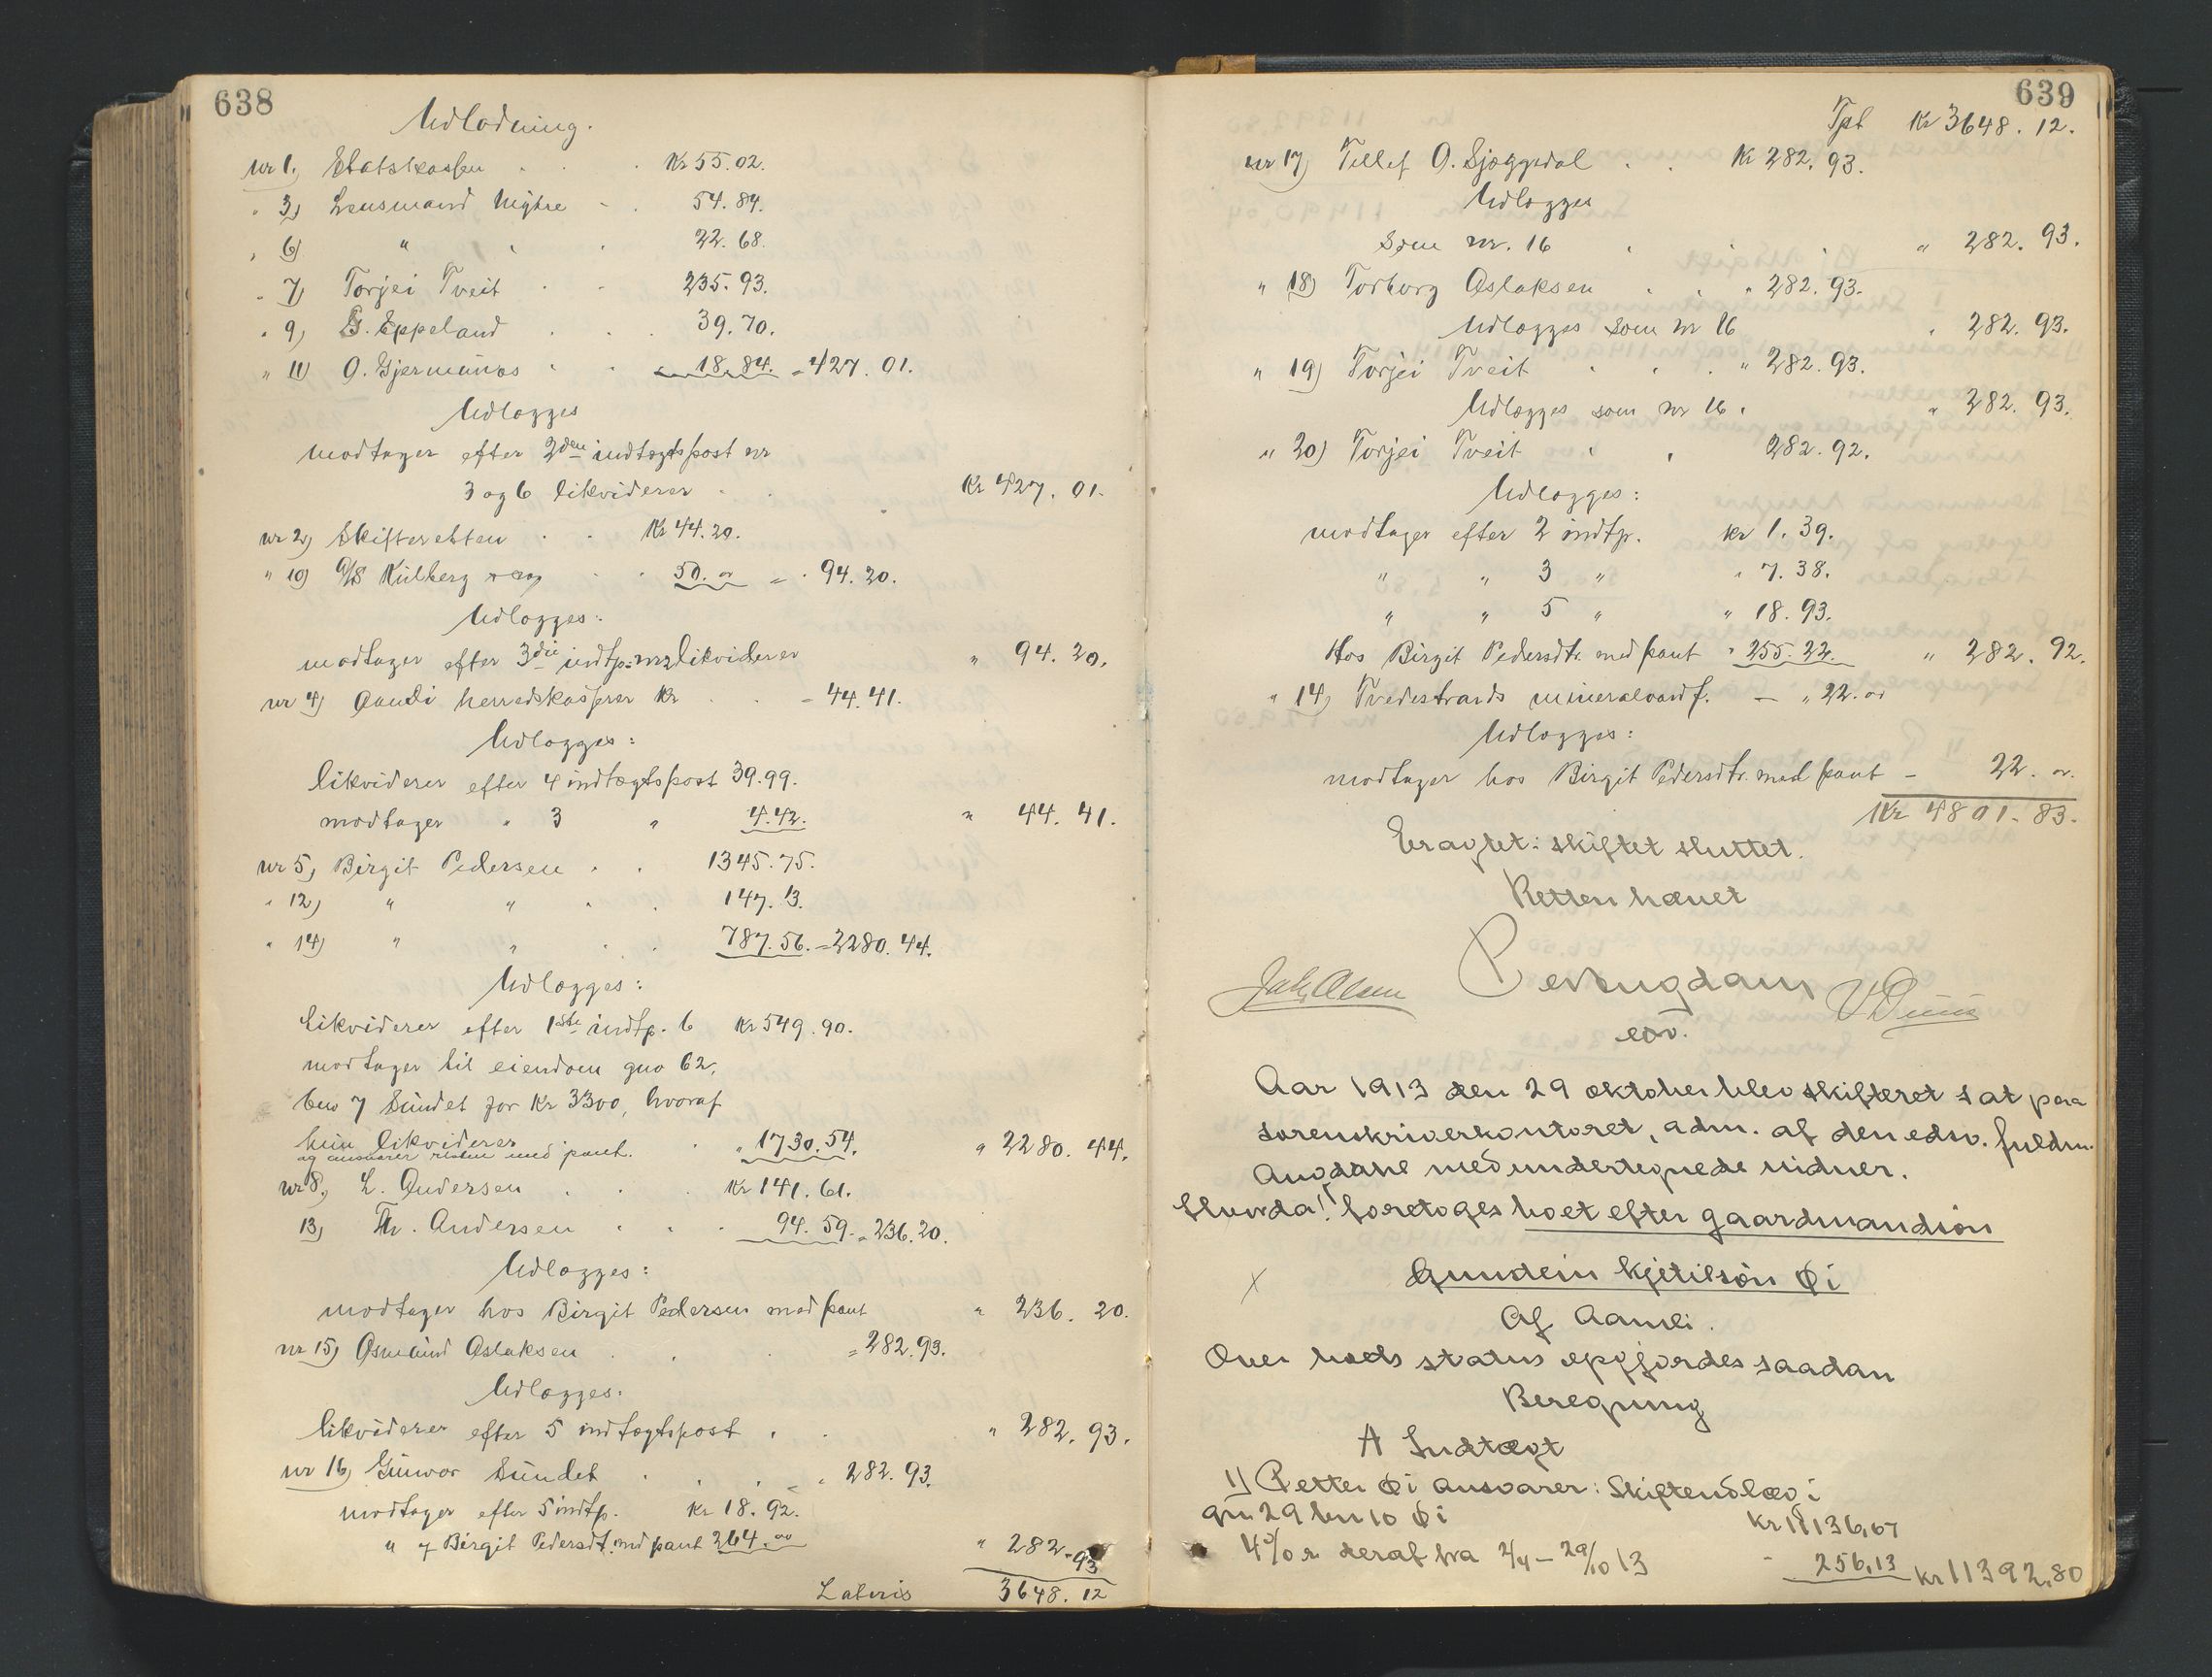 638
Udlodning.
nr 1, Statskassen Kr 55.02.
" 3, Lensmand Nighre 54.84.
" 6) " 22.68.
" 7, Torjei Tveit 235.93.
" 9, G. Eppeland 39.70.
" 11) O. Gjermunds 18.84. = 427.01.
Udlægges
modtager efter 2den indtægtspost nr
3 og 6 likviderer Kr 427.01.
nr 2, Skifteretten Kr 44.20.
" 10) A/S Külberg 50. = 94.20.
Udlægges:
modtager efter 3die indtp. nr 2 likviderer " 94.20.
nr 4) Aamli herredskasserer Kr = 44.41.
Udlægges:
likviderer efter 4 indtægtspost 39.99.
modtager " 3 " 4.42. " 44.41.
nr 5, Birgit Pedersen 1345.75.
" 12) " " 147.13.
" 14) " " 787.56. = 2280.44.
Udlægges:
likviderer efter 1ste indtp. 6 Kr 549.90.
modtager til eiendom gno 62,
bno 7 Sündet for Kr 3300, hvoraf
hun likviderer
og ansvarer resten med pant. " 1730.54. " 2280.44.
nr 8, L. Andersen Kr 141.61.
13, Th. Andersen 94.59. = 236.20.
Udlægges:
modtager hos Birgit Pedersen med pant " 236.20.
nr 15, Osmünd Aslaksen = 282.93.
Udlægges.
likviderer efter 5 indtægtspost " 282.93.
nr 16, Günvor Sündet " 282.93.
modtager efter 5 indtp. Kr 18.92.
" Birgit Pedersdt. med pant 264. " 282.93
Lateris 3648.12
639
Tpt Kr 3648.12.
nr 17) Tellef O. Sjæggedal Kr 282.93.
Udlægges
som nr. 16 " 282.93.
" 18) Torborg Aslaksen " 282.93.
Udlægges som nr 16 " 282.93.
" 19) Torjei Tveit " 282.93.
Udlægges som nr 16. " 282.93.
" 20) Torjei Tveit 282.92.
Udlægges:
modtager efter 2 indtp. kr 1.39.
" " 3 " " 7.38.
" " 5 " " 18.93.
Hos Birgit Pedersdtr. med pant " 255.22. " 282.92.
" 14) Tvedestrands mineralvandf. — " 22.
Udlægges:
modtager hos Birgit Pedersdtr. med pant - 22.
Kr 4801.83.
Eragtet: skiftet sluttet.
Retten hævet
Joh Olsen
edv.
Aar 1913 den 29 oktober blev skifteret sat paa
sorenskriverkontoret, adm. af den edsv. fuldm.
Augdahl med undertegnede vidner.
foretoges boet efter gaardmandsøn
x
Gundein Kjetilsøn Øi
Af Aamli.
Over boets status opgjordes saadan
Beregning
A Indtægt
1) Petter Øi ansvarer: Skifteudlæg i
gn 29 bn 10 Øi kr 11136,67
4% r deraf fra 2/4 - 29/10 13 - 256,13 kr 11392,80